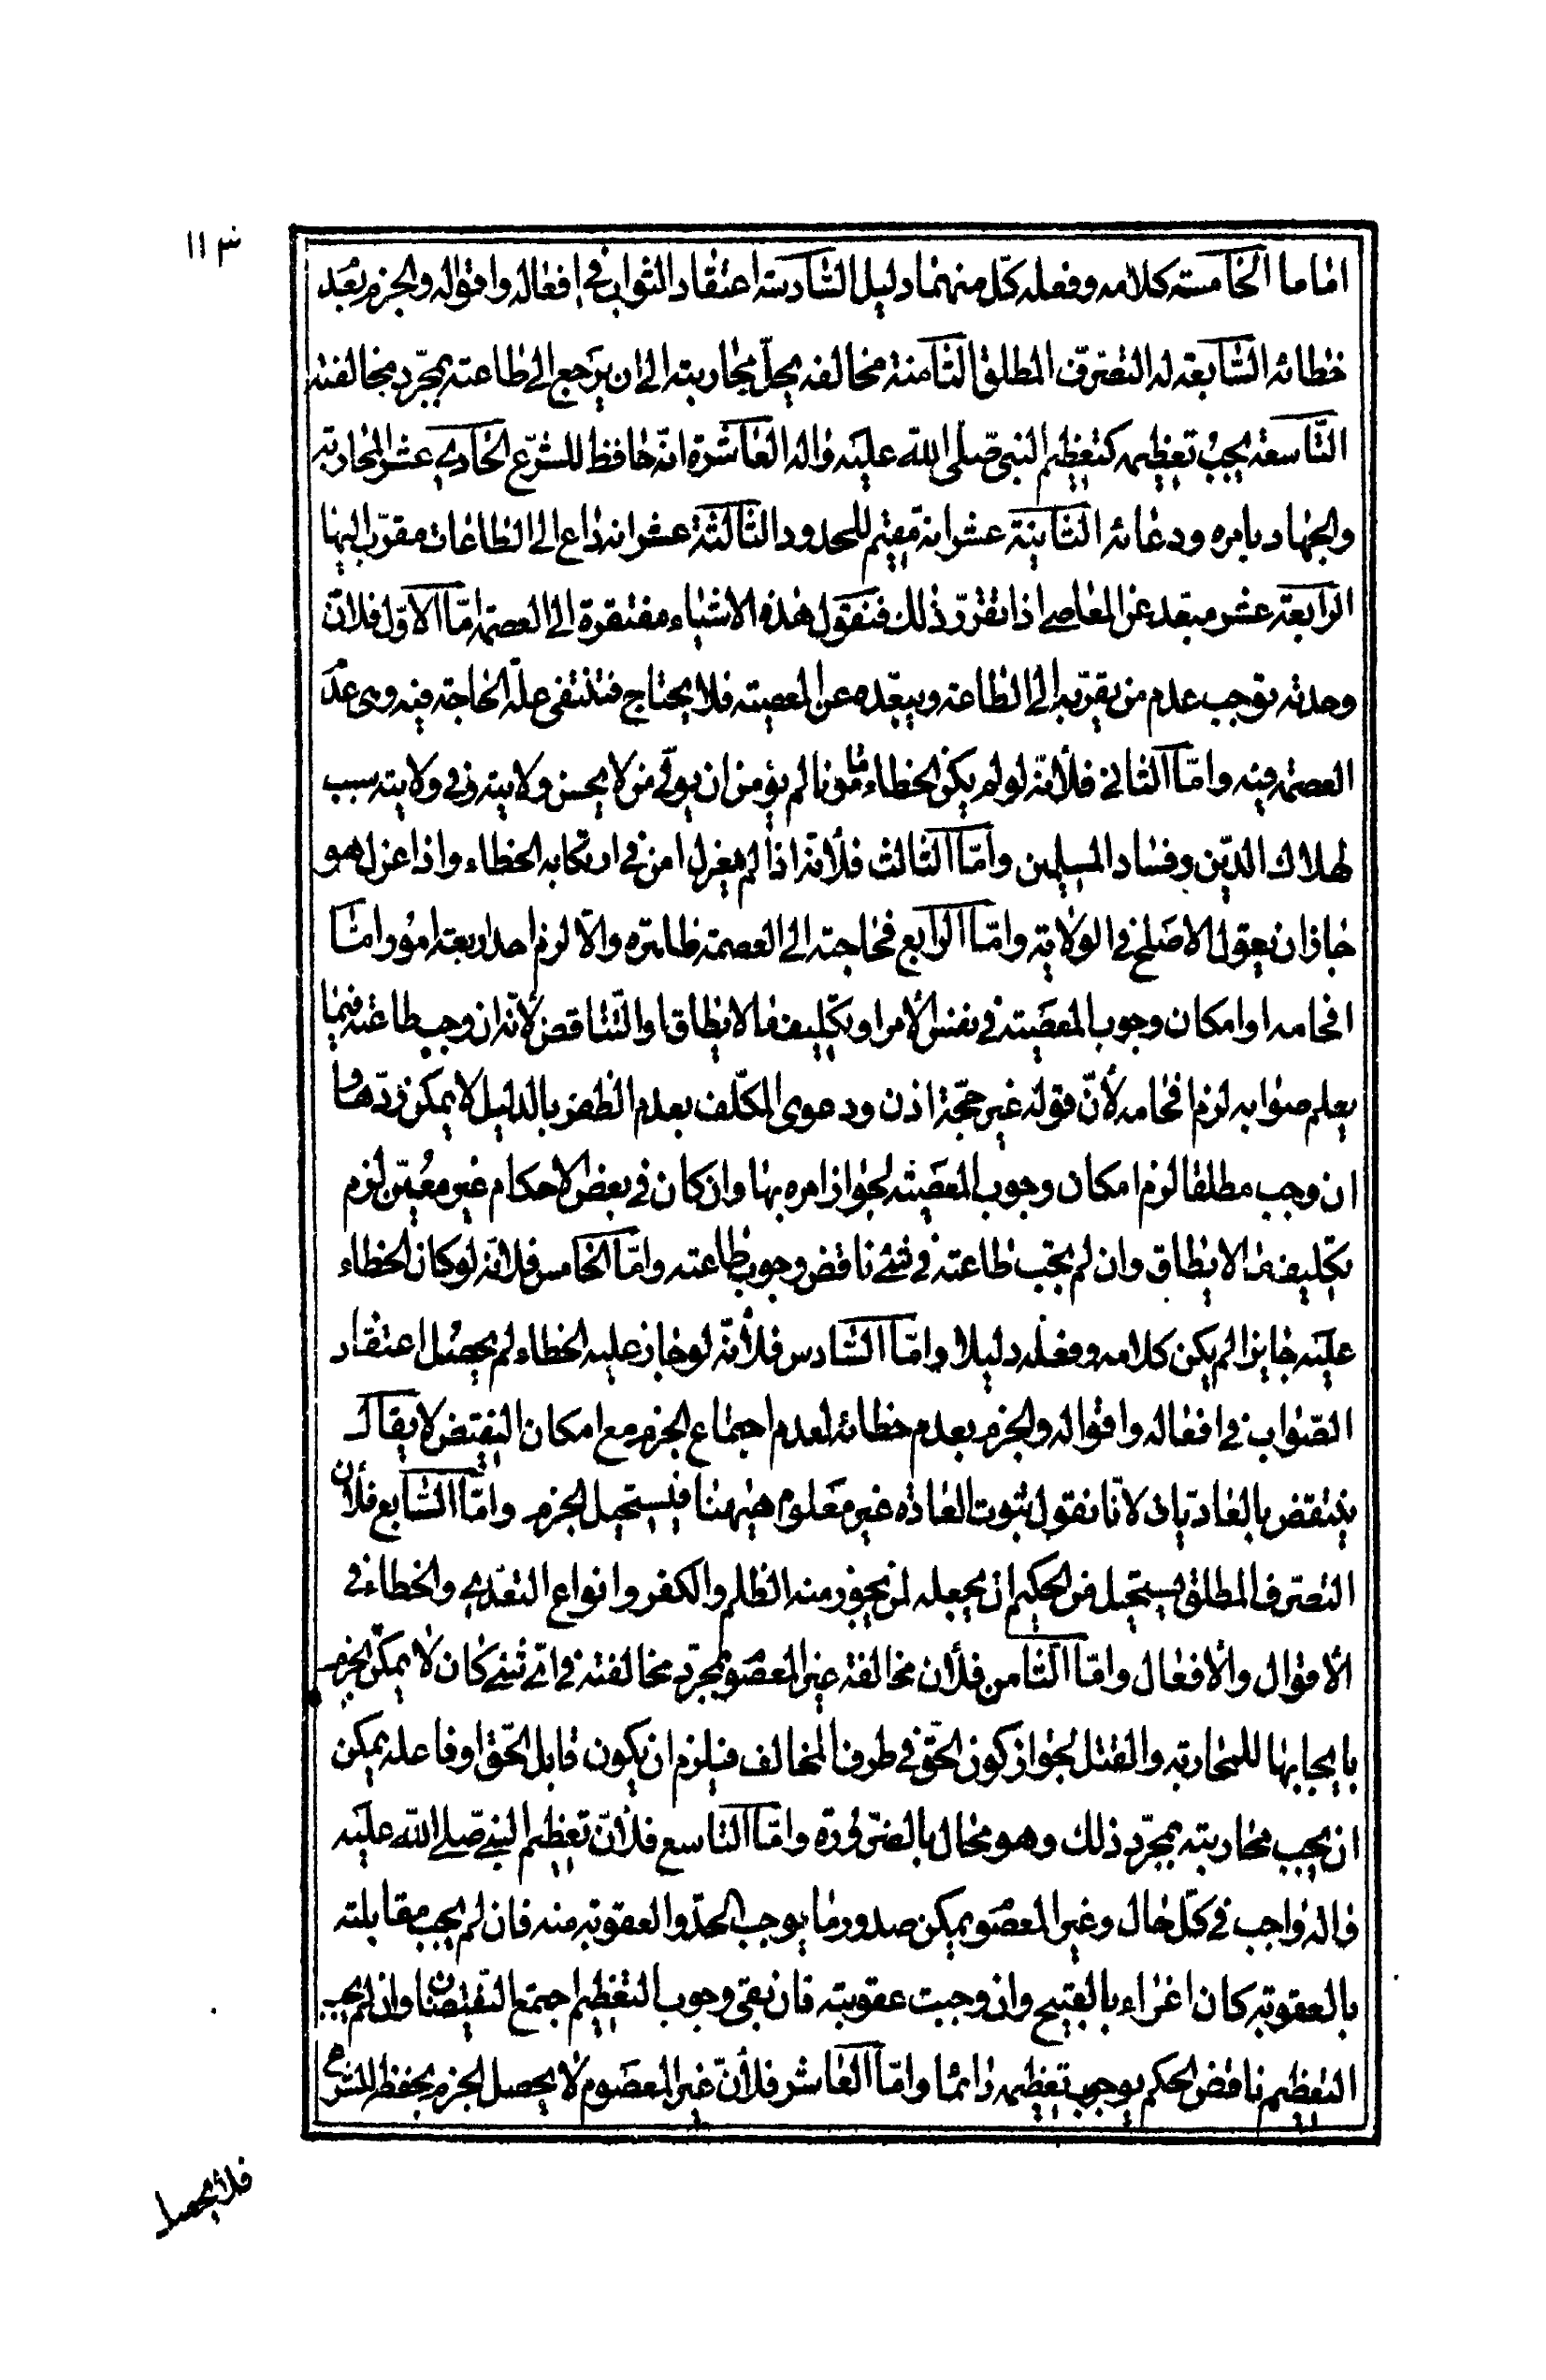 ١١٣
اماما الخامسة كلامه وفعله كل منهما دليل السادسة اعتقاد الثواب في افعاله واقواله والجزم بعد
خطائه السابعة له التصرف المطلق الثامنة مخالفه يحل محاربته الى ان يرجع الى طاعته بمجرد مخالفته
التاسعة يجب تعظيمه كتعظيم النبي صلى الله عليه واله العاشرة انه حافظ للشرع الحادي عشر المحاربة
والجهاد بامره ودعائه الثانية عشر انه مقيم للحدود الثالثة عشر انه داع الى الطاعات مقرب اليها
الرابعة عشر مبعد عن المعاصي اذا تقرر ذلك فنقول هذه الاشياء مفتقرة الى العصمة اما الاول فلان
وحدته توجب عدم من يقربه الى الطاعة ويبعده عن المعصية فلا يحتاج فتنتفى علة الحاجة فيه وهى عدم
العصمة فيه واما الثاني فلانه لو لم يكن الخطاء مأمونا لم يؤمن ان يولى من لا يحسن ولايته وفي ولايته سبب
لهلاك الدين وفساد المسلمين واما الثالث فلانه اذا لم يعزل امن في ارتكابه الخطاء واذا عزل هو
جاز ان يعزل الاصلح في الولاية واما الرابع فحاجته الى العصمة ظاهرة والا لزم احد اربعة امور اما
افحامه او امكان وجوب المعصية في نفس الأمر او تكليف ما لا يطاق او التناقض لأنه ان وجب طاعته فيما
يعلم صوابه لزم افحامه لأن قوله غير حجة اذن ودعوى المكلف بعدم الظفر بالدليل لا يمكن ردها و
ان وجب مطلقا لزم امكان وجوب المعصية لجواز امره بها وان كان في بعض الاحكام غير معين لزم
تكليف ما لا يطاق وان لم يجب طاعته في شئ ناقض وجوب طاعته واما الخامس فلانه لو كان الخطاء
عليه جايزا لم يكن كلامه وفعله دليلا واما السادس فلأنه لو جاز عليه الخطاء لم يحصل اعتقاد
الصواب في افعاله واقواله والجزم بعدم خطائه لعدم اجتماع الجزم مع امكان النقيض لا يقال
ينتقض بالعاديات لانا نقول ثبوت العادة غير معلوم هيهنا فيستحيل الجزم واما السابع فلأن
التصرف المطلق يستحيل من الحكيم ان يجعله لمن يجوز منه الظلم والكفر وانواع التعدي والخطاء في
الأقوال والأفعال واما الثامن فلأن مخالفة غير المعصوم بمجرد مخالفته في اي شئ كان لا يمكن الجزم
بايجابها للمحاربة والقتل لجواز كون الحق في طرف المخالف فيلزم ان يكون قابل الحق او فاعله يمكن
ان يجب محاربته بمجرد ذلك وهو محال بالضرورة واما التاسع فلأن تعظيم النبي صلى الله عليه
واله واجب في كل حال وغير المعصوم يمكن صدور ما يوجب الحد والعقوبة منه فان لم يجب مقابلته
بالعقوبة كان اغراء بالقبيح وان وجبت عقوبته فان بقى وجوب التعظيم اجتمع النقيضان وان لم يجب
التعظيم ناقض الحكم بوجوب تعظيمه دائما واما العاشر فلأن غير المعصوم لا يحصل الجزم بحفظه للشرع
فلا يحصل